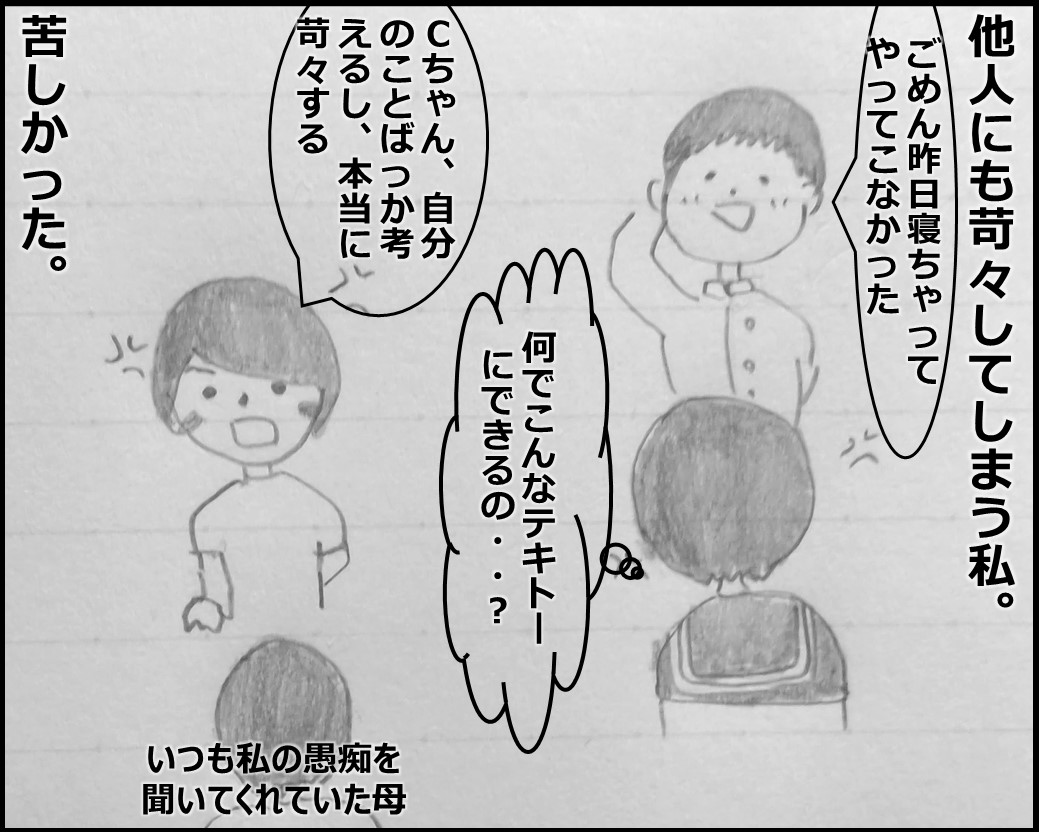 他人にも苛々してしまう私。
ごめん昨日寝ちゃって
やってこなかった
何でこんなテキトー
にできるの・・?
Cちゃん、自分
のことばっか考
えるし、本当に
苛々する
苦しかった。
いつも私の愚痴を
聞いてくれていた母